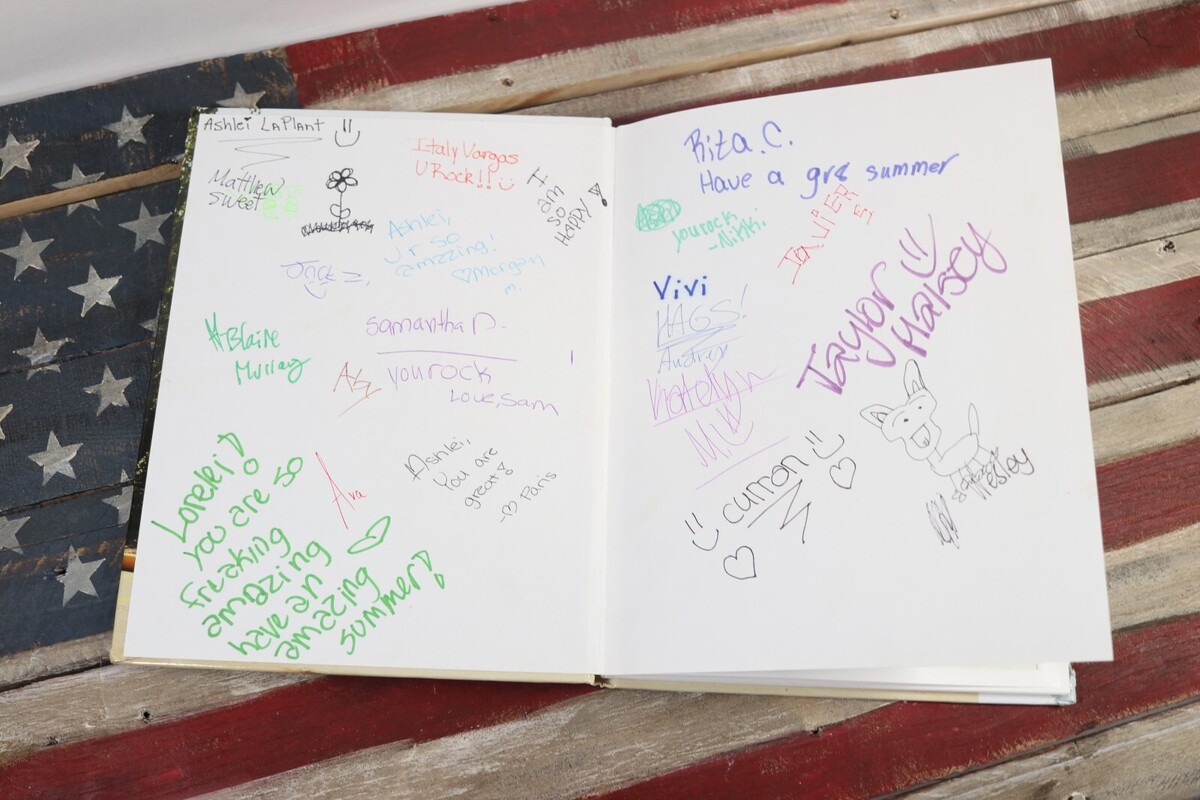 Ashlei LaPlant
Matthew
Sweet
Italy Vargas
U Rock!!
I am
so
HAPPY!
Ashlei,
U r so
amazing!
♡Morgan
m.
Jack
Blaine
Murray
Samantha D.
you rock
Love, Sam
Lorelei!
you are so
freaking
amazing
have an
amazing
summer!
Ava
Ashlei,
You are
great!
-♡ Paris
Rita. C.
Have a gr8 summer
you rock
-Nikki
JAVIER
Vivi
HAGS!
Audrey
Katelyn
Taylor
Halsey
curron
Presley